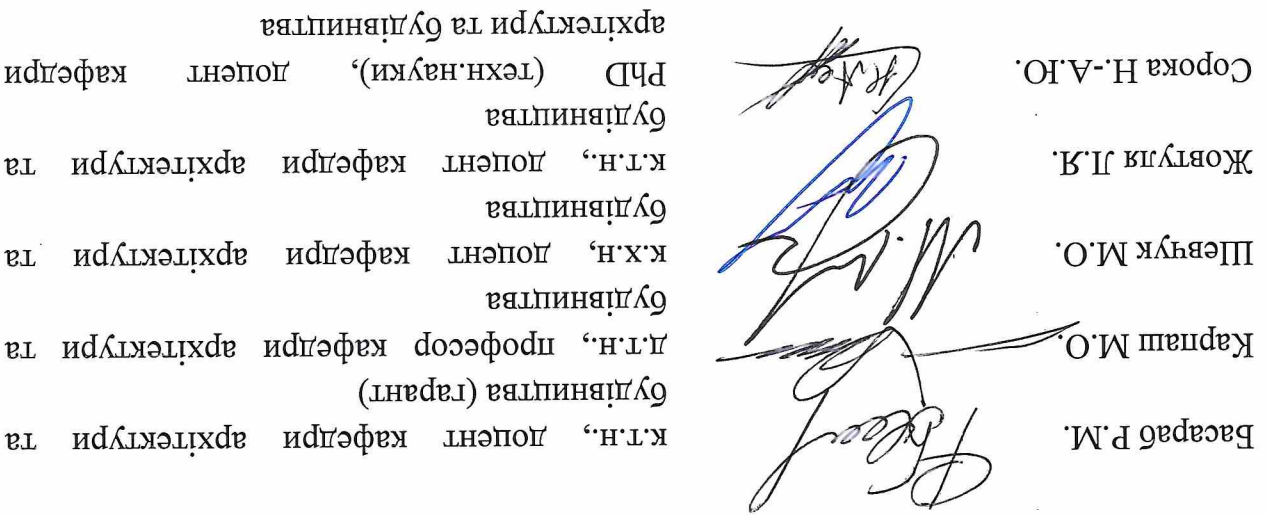 Басараб Р.М. к.т.н., доцент кафедри архітектури та
будівництва (гарант)
Карпаш М.О. д.т.н., професор кафедри архітектури та
будівництва
Шевчук М.О. к.х.н, доцент кафедри архітектури та
будівництва
Жовтуля Л.Я. к.т.н., доцент кафедри архітектури та
будівництва
Сорока Н.-А.Ю. PhD (техн.науки), доцент кафедри
архітектури та будівництва